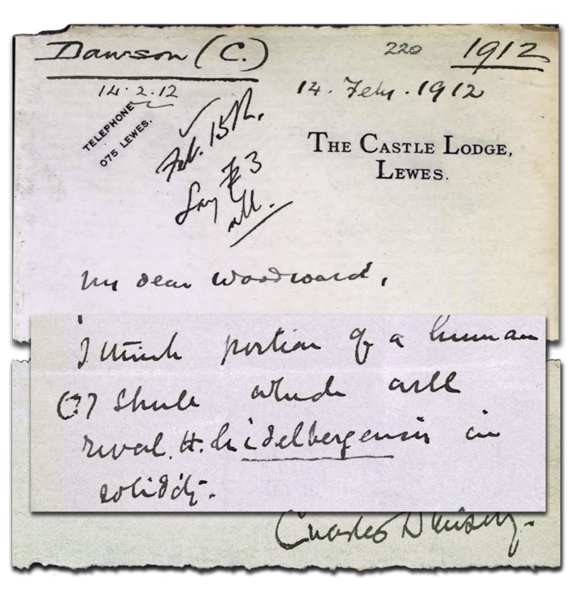 Dawson (C.) 220 1912
14.2.12 14. Feby. 1912
TELEPHONE
075 LEWES.
Feb. 15th.
THE CASTLE LODGE,
LEWES.
My dear Woodward,
I think portion of a human
(?) skull which will
rival H. heidelbergensis in
solidity.
Charles Dawson.